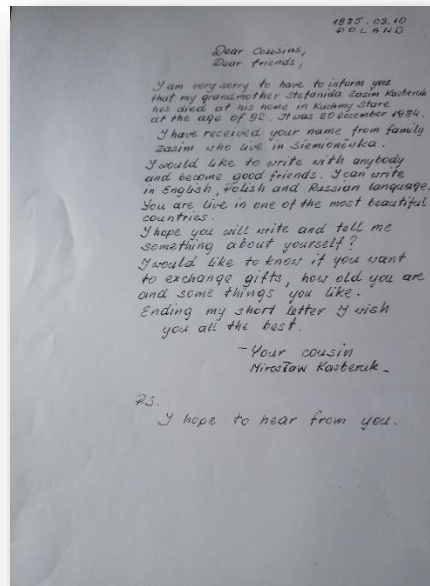 1985.03.10
POLAND
Dear Cousins,
Dear friends,
I am very sorry to have to inform you
that my grandmother Stefanida Zasim Kazberuk
has died at his home in Kuchmy Stare
at the age of 92. It was 20 December 1984.
I have received your name from family
Zasim who live in Siemionówka.
I would like to write with anybody
and become good friends. I can write
in English, Polish and Russian language.
You are live in one of the most beautiful
countries.
I hope you will write and tell me
something about yourself?
I would like to know if you want
to exchange gifts, how old you are
and some things you like.
Ending my short letter I wish
you all the best.
- Your cousin
Mirosław Kazberuk -
P.S.
I hope to hear from you.